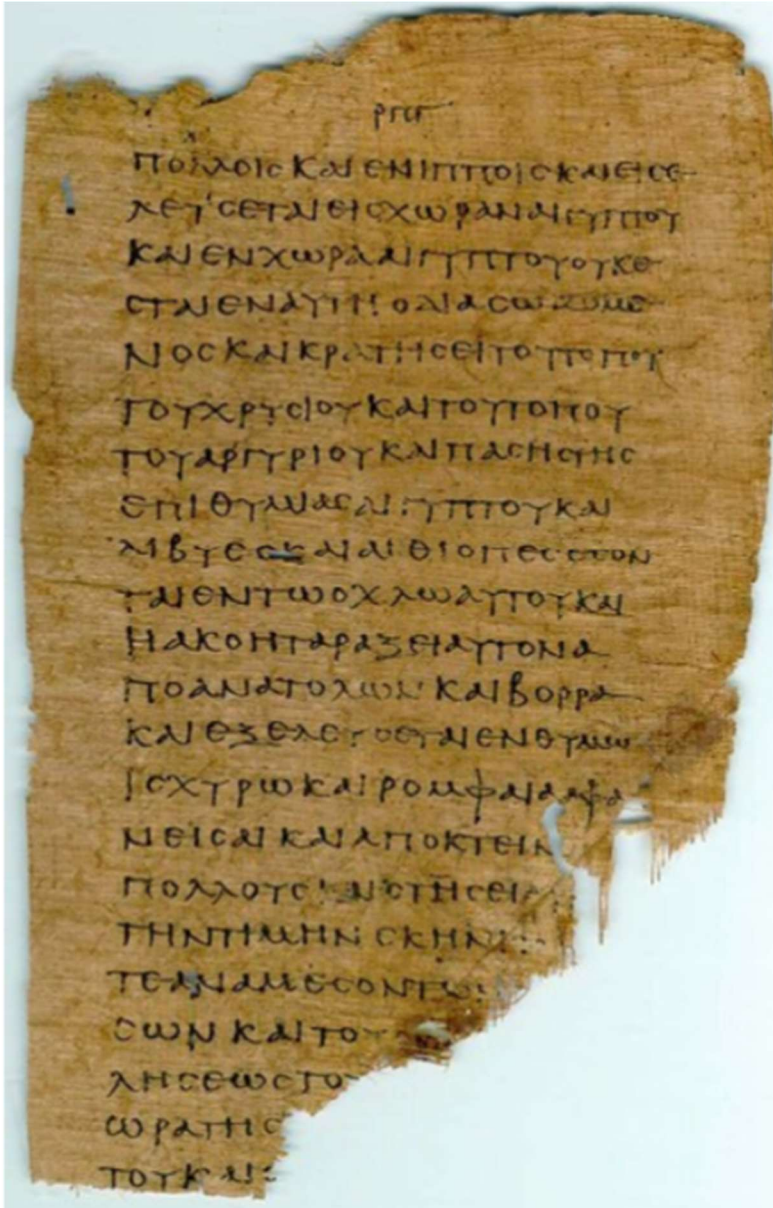 ρπγ
ΠΟΙΛΟΙСΚΑΙΕΝΙΠΠΟΙСΚΑΙΕΙСΕ
ΛΕΥСΕΤΑΙΕΙСΧΩΡΑΝΑΙΓΥΠΤΟΥ
ΚΑΙΕΝΧΩΡΑΑΙΓΥΠΤΟΥΟΥΚΕ
СΤΑΙΕΝΑΥΤΗΟΔΙΑСΩΖΟΜΕ
ΝΟСΚΑΙΚΡΑΤΗСΕΙΤΟΥΤΟΠΟΥ
ΤΟΥΧΡΥСΙΟΥΚΑΙΤΟΥΤΟΠΟΥ
ΤΟΥΑΡΓΥΡΙΟΥΚΑΙΠΑСΗСΤΗС
ΕΠΙΘΥΜΙΑСΑΙΓΥΠΤΟΥΚΑΙ
ΛΙΒΥΕСΚΑΙΑΙΘΙΟΠΕСΕСΟΝ
ΤΑΙΕΝΤΩΟΧΛΩΑΥΤΟΥΚΑΙ
ΗΑΚΟΗΤΑΡΑΞΕΙΑΥΤΟΝΑ
ΠΟΑΝΑΤΟΛΩΝΚΑΙΒΟΡΡΑ
ΚΑΙΕΞΕΛΕΥСΕΤΑΙΕΝΘΥΜΩ
ΙСΧΥΡΩΚΑΙΡΟΜΦΑΙΑΑΦΑ
ΝΕΙСΑΙΚΑΙΑΠΟΚΤΕΙΝ
ΠΟΛΛΟΥС СΤΗСΕΙ
ΤΗΝΤΙΜΗΝСΚΗΝ
ΤΕΑΝΑΜΕСΟΝΤΩ
СΩΝΚΑΙΤΟΥ
ΛΗСΕΩСΤΟΥ
ΩΡΑΤΗС
ΤΟΥΚΑΙ